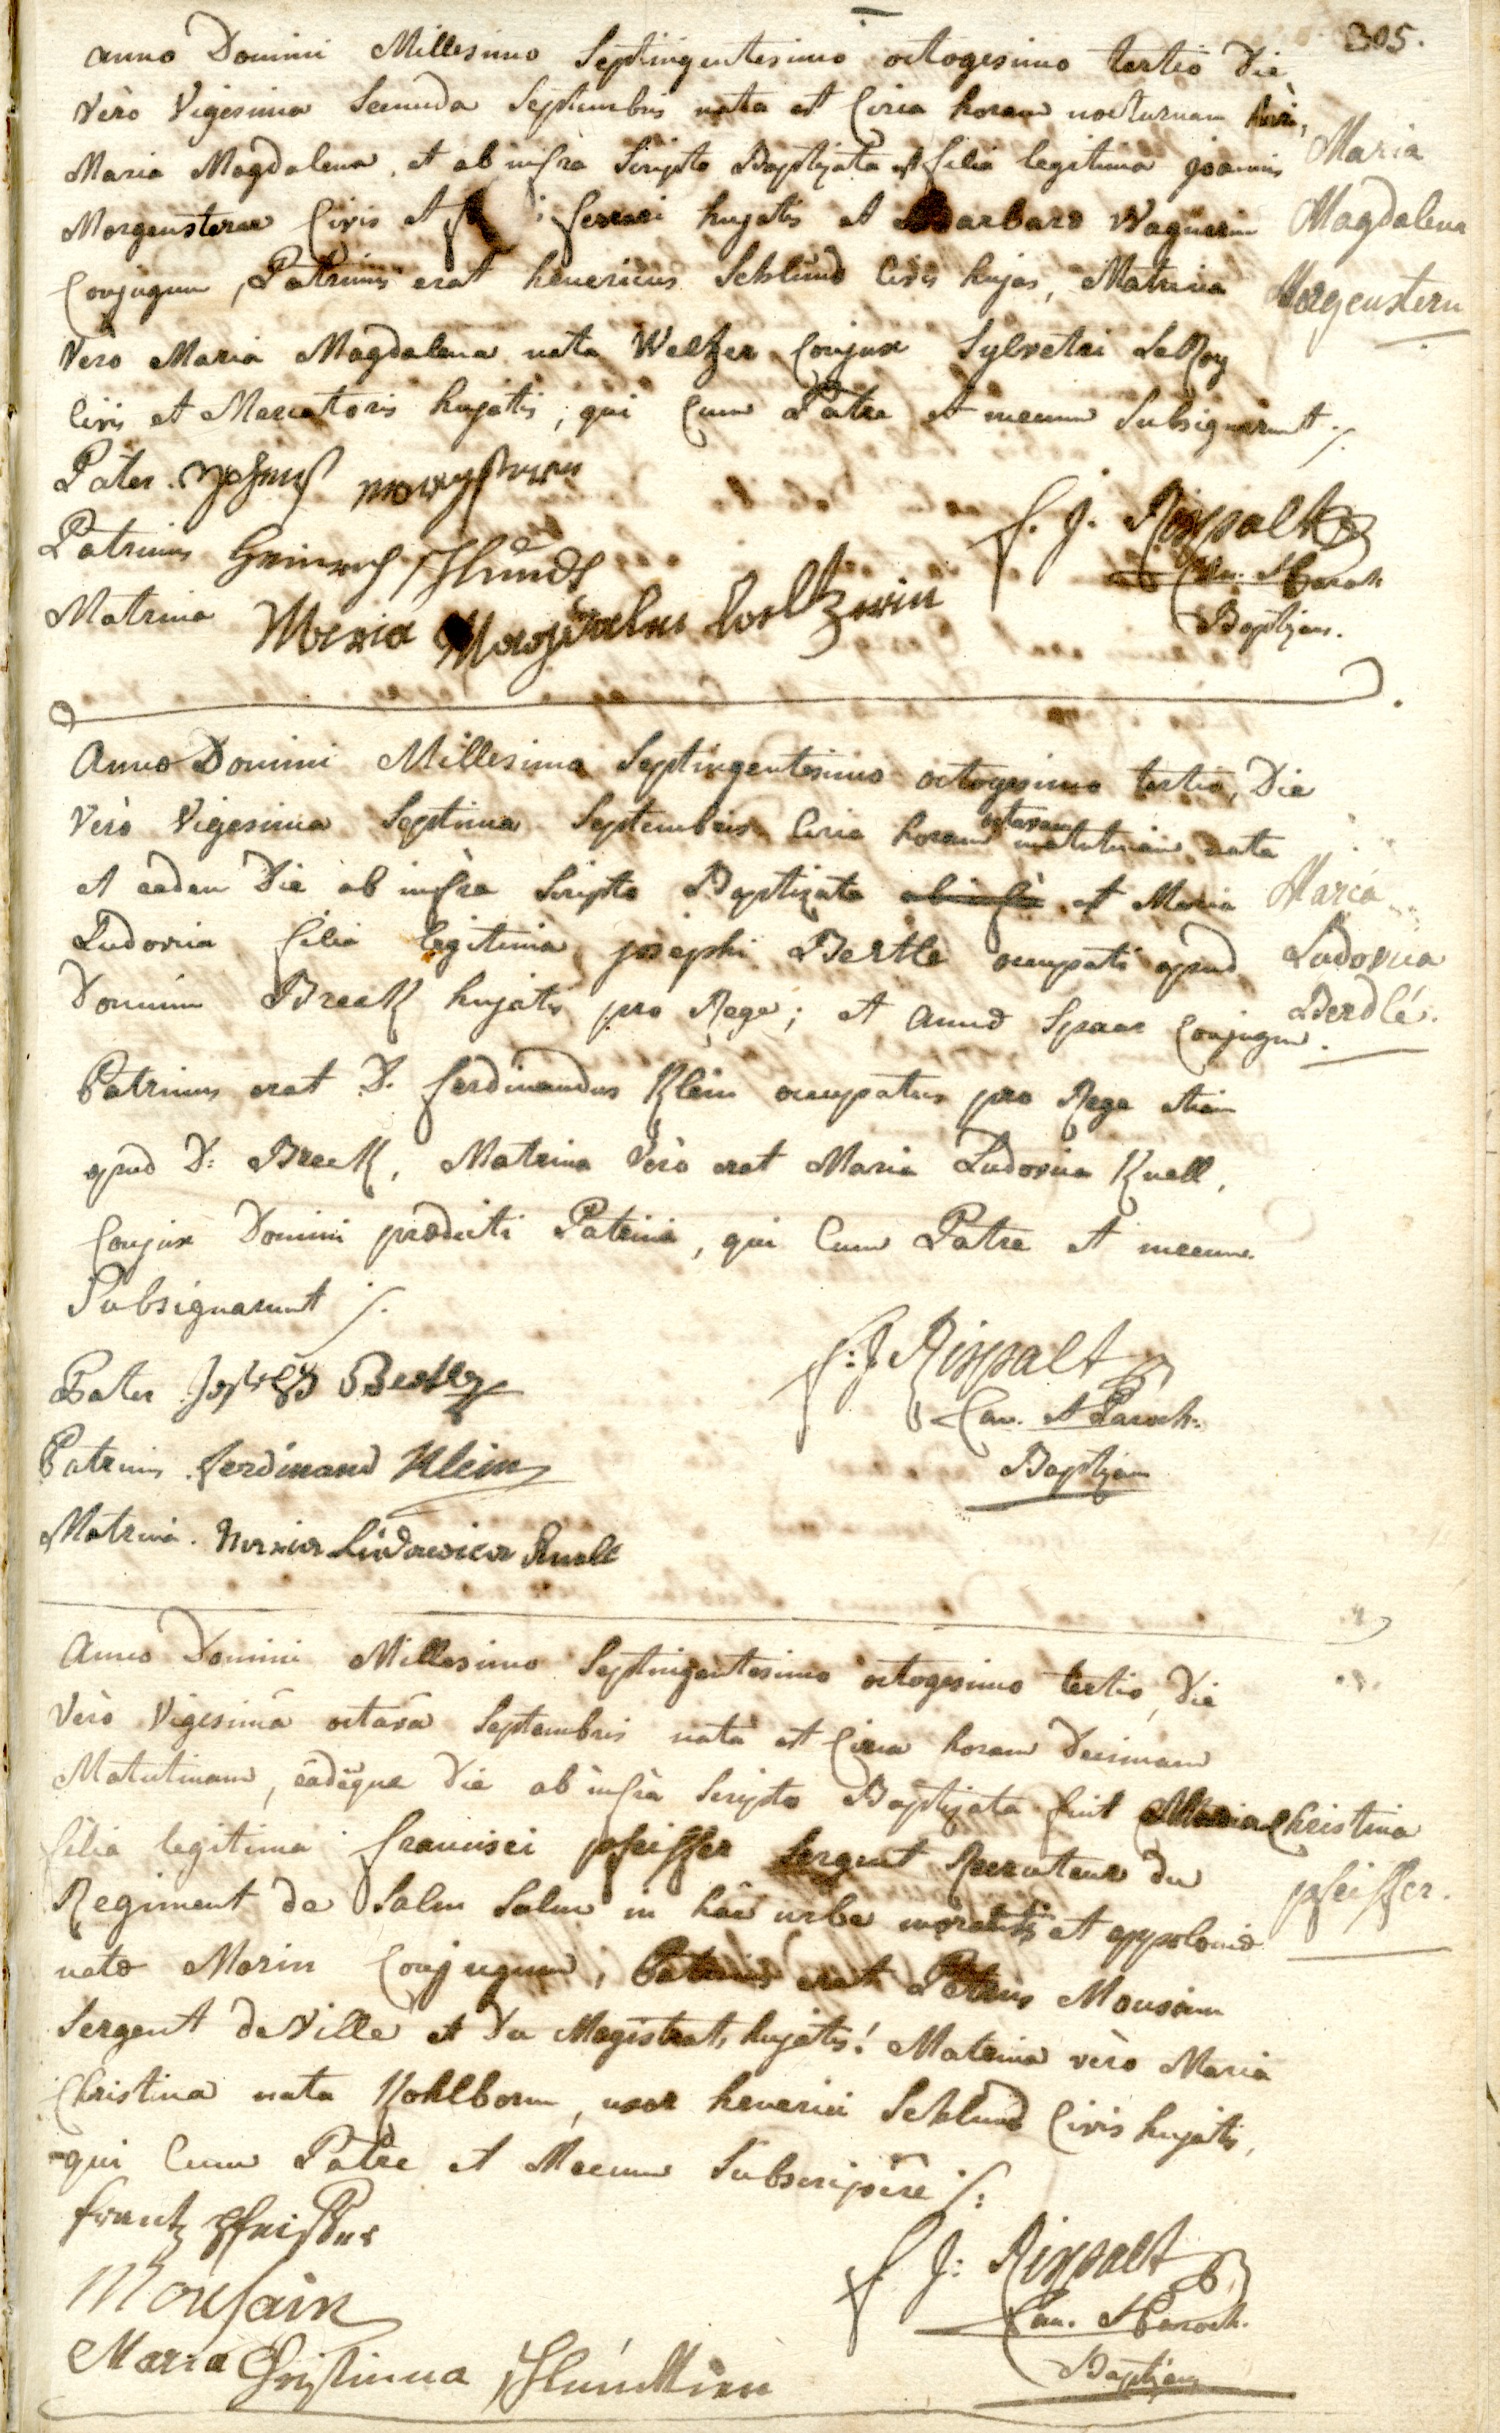 305.
anno Domini Millesimo Septingentesimo octogesimo tertio Die
Verò Vigesima Secunda Septembris nata est Circa horam nocturnam
Maria Magdalena, et ab infrà Scripto Baptizata est filia legitima joannis
Morgensterne Civis et ferrari hujatis et Barbarae Wagnerin
Conjugum, Patrinus erat henericus Schlund Civis hujas, Matrina
Verò Maria Magdalena nata Weltzer Conjux Sylvetri LeRoy
Civis et Mercatoris hujatis, qui Cum Patre et mecum Subsignarunt ./.
Maria
Magdalena
Morgenstern
Pater.
Patrinus Heinrich Schlundt
Matrina Maria Magdalena
f. J. Rispalt
Can. et Paroch
Baptizans.
Anno Domini Millesimo Septingentesimo octogesimo tertio, Die
Verò Vigesima Septima Septembris Circa horam octavam matutinam nata
et eadem Die ab infra Scripto Baptizata est Maria
Ludovica filia legitima josephi Bertle occupati apud
Dominum Breck hujatis pro Rege; et Annae Spaar Conjugum.
Patrinus erat D. ferdinandus Klein occupatus pro Rege etiam
apud D: Breck, Matrina Verò erat Maria Ludovica Knell,
Conjux Domini praedicti Patrini, qui Cum Patre et mecum
Subsignarunt ./.
Maria
Ludovica
Berdlé.
Pater Joseph Bertle
Patrinus ferdinand Klein
Matrina. Maria Ludowica Knell
f: J Rispalt
Can. et Paroch.
Baptizans
Anno Domini Millesimo Septingentesimo octogesimo tertio, Die
Verò Vigesimâ octavâ Septembris nata est Circa horam Decimam
Matutinam, eâdêque Die ab infrà Scripto Baptizata fuit Maria Christina
filia legitima francisci pfeiffer Sergent Recruteur du
Regiment de Salm Salm in hâc urbe morantis et appoloniae
natae Morin Conjugum, Patrinus erat Petrus Mousain
Sergent de Ville et Du Magistrat hujatis! Matrina verò Maria
Christina nata Kohlborn, uxor henerici Schlund Civis hujatis,
qui Cum Patre et Mecum Subscripsêre ./:
pfeiffer.
frantz Pfeiffer
Mousain
Maria Christinna Schlundtien
f J: Rispalt
Can. et Paroch.
Baptizans